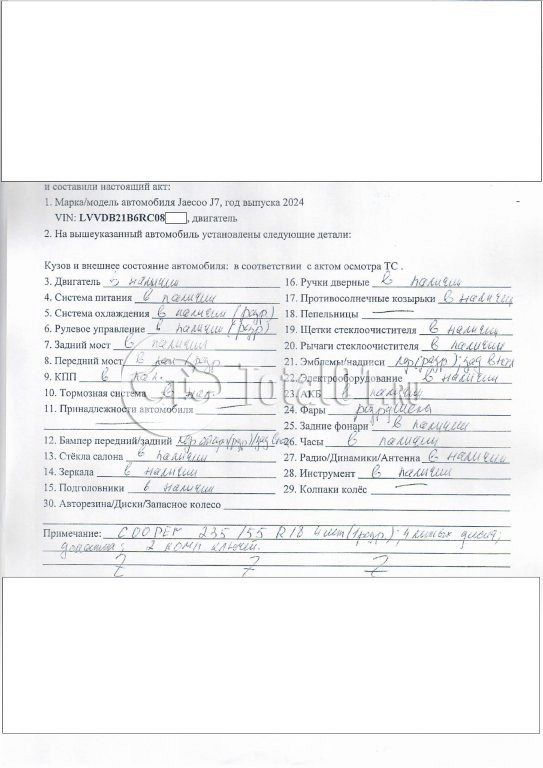 и составили настоящий акт:
1. Марка/модель автомобиля Jaecoo J7, год выпуска 2024
VIN: LVVDB21B6RC08 , двигатель
2. На вышеуказанный автомобиль установлены следующие детали:
Кузов и внешнее состояние автомобиля: в соответствии с актом осмотра ТС .
3. Двигатель в наличии
4. Система питания в наличии
5. Система охлаждения в наличии (разр)
6. Рулевое управление в наличии (разр)
7. Задний мост в наличии
8. Передний мост в нал (разр
9. КПП в нал.
10. Тормозная система в нал
11. Принадлежности автомобиля
12. Бампер передний/задний
13. Стёкла салона в наличии
14. Зеркала в наличии
15. Подголовники в наличии
16. Ручки дверные в наличии
17. Противосолнечные козырьки в наличии
18. Пепельницы —
19. Щетки стеклоочистителя в наличии
20. Рычаги стеклоочистителя в наличии
21. Эмблемы/надписи пер (разр); зад в нал
22. Электрооборудование в наличии
23. АКБ в наличии
24. Фары разрушены
25. Задние фонари в наличии
26. Часы в наличии
27. Радио/Динамики/Антенна в наличии
28. Инструмент в наличии
29. Колпаки колёс —
30. Авторезина/Диски/Запасное колесо
Примечание: COOPER 235/55 R18 4 шт (1 разр.); 4 литых диска;
2 комп ключи.
Z Z Z
Total01.ru